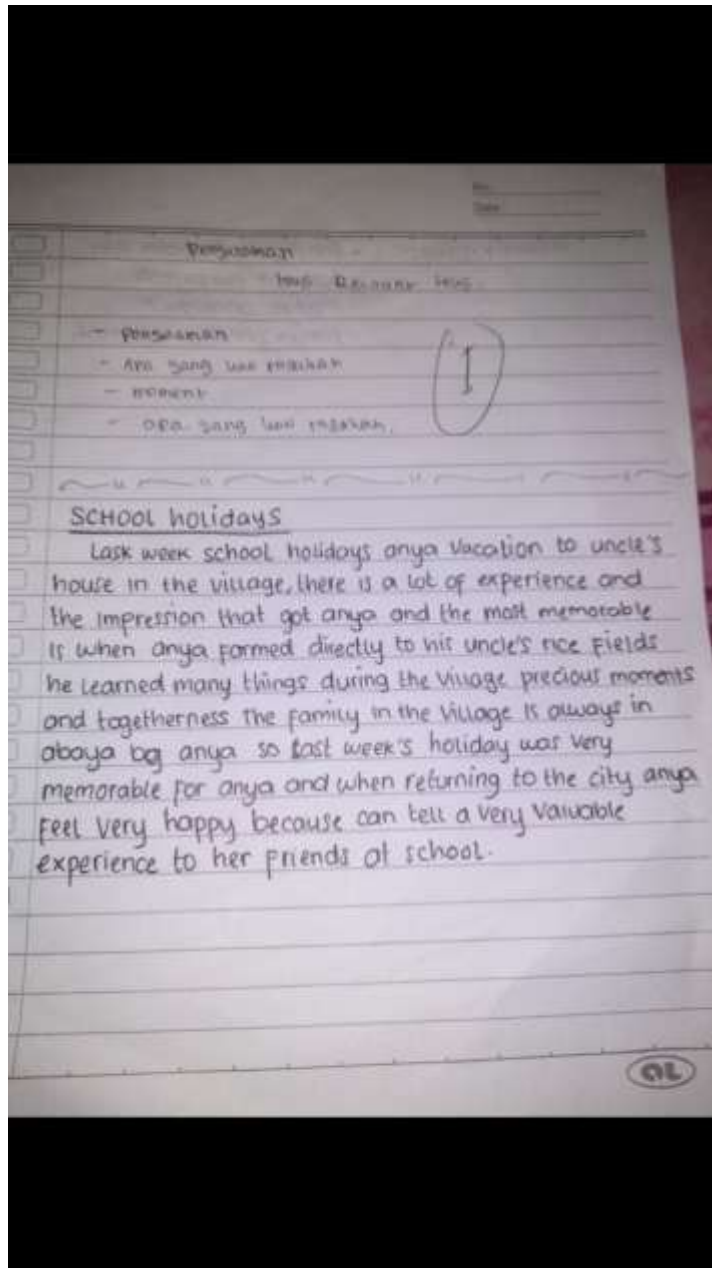 No.
Date
Pengalaman
- Pengalaman
- Apa yang kau rasakan
- moment
- apa yang kau rasakan.
I
SCHOOL holidays
Lask week school holidays anya vacation to uncle's
house in the village, there is a lot of experience and
the impression that got anya and the most memorable
is when anya formed directly to his uncle's rice fields
he learned many things during the village precious moments
and togetherness the family in the village is always in
abaya by anya so last week's holiday was very
memorable for anya and when returning to the city anya
feel very happy because can tell a very valuable
experience to her friends at school.